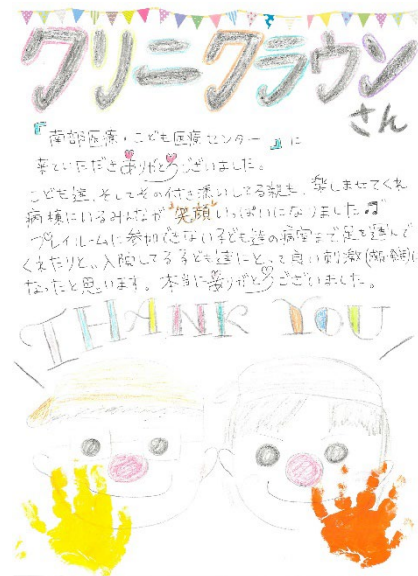 クリニクラウン
さん
『南部医療・こども医療センター』に
来ていただきありがとうございました。
こども達、そしてその付き添いしてる親も、楽しませてくれ
病棟にいるみんなが"笑顔"いっぱいになりました♫
プレイルームに参加できない子ども達の病室まで足を運んで
くれたりと、入院してる子ども達にとって良い刺激
なったと思います。本当にありがとうございました。
THANK YOU